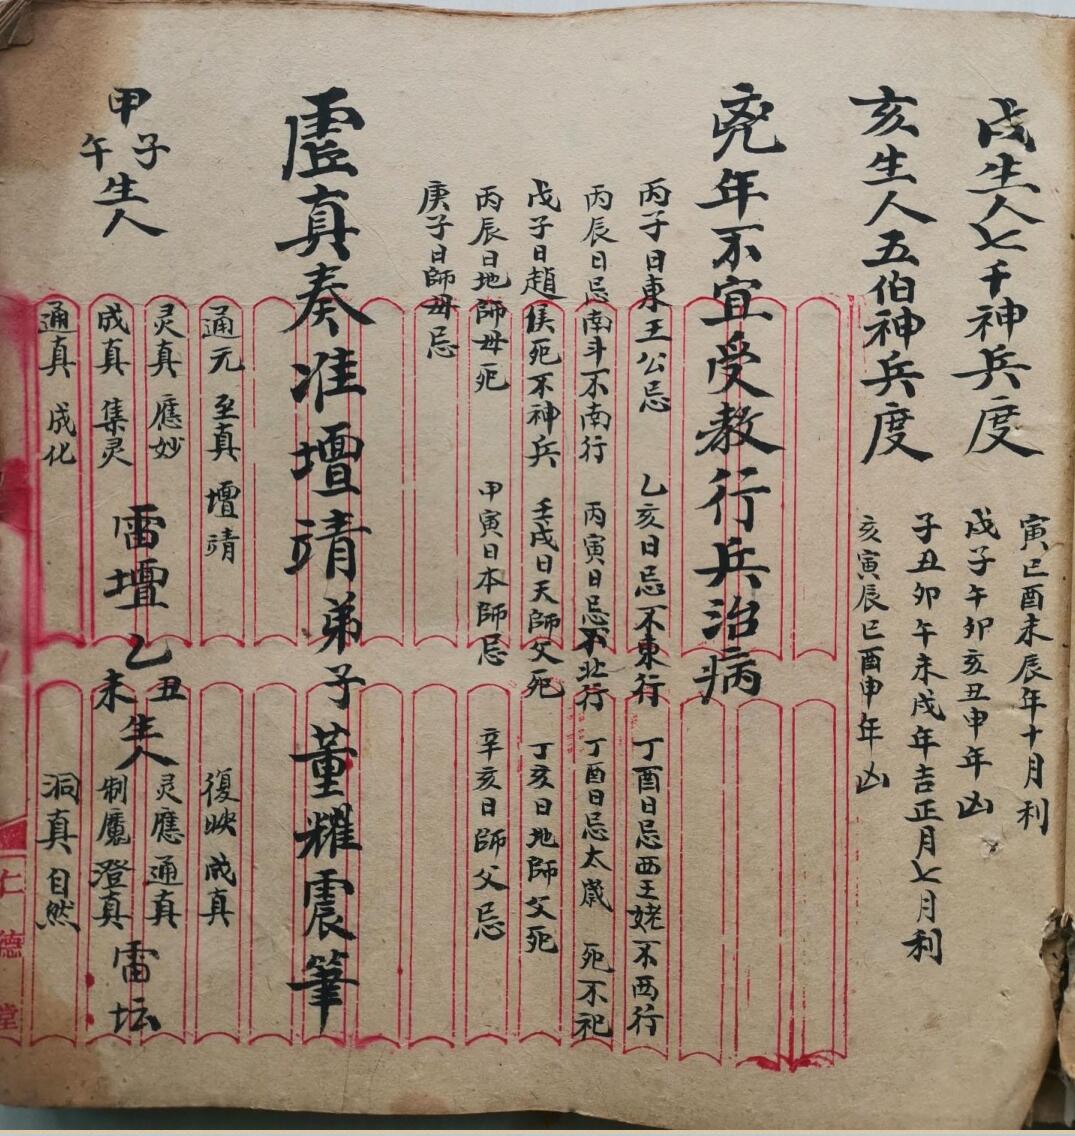 戌生人七千神兵度
寅巳酉未辰年十月利
戌子午卯亥丑申年凶
亥生人五伯神兵度
子丑卯午未戌年吉正月七月利
亥寅辰巳酉申年凶
兇年不宜受教行兵治病
丙子日東王公忌 乙亥日忌不東行 丁酉日忌西王姥不西行
丙辰日忌南斗不南行 丙寅日忌不北行 丁酉日忌太歲 死不祀
戊子日趙侯死不神兵 壬戌日天師父死 丁亥日地師父死
丙辰日地師母死 甲寅日本師忌 辛亥日師父忌
庚子日師母忌
虛真奏准壇靖弟子董耀震筆
甲子午生人
通元 至真 壇靖
灵真 應妙
成真 集灵
通真 成化
雷壇
乙丑未生人
復映 成真
灵應 通真
制魔 澄真
洞真 自然
雷坛
仁德堂